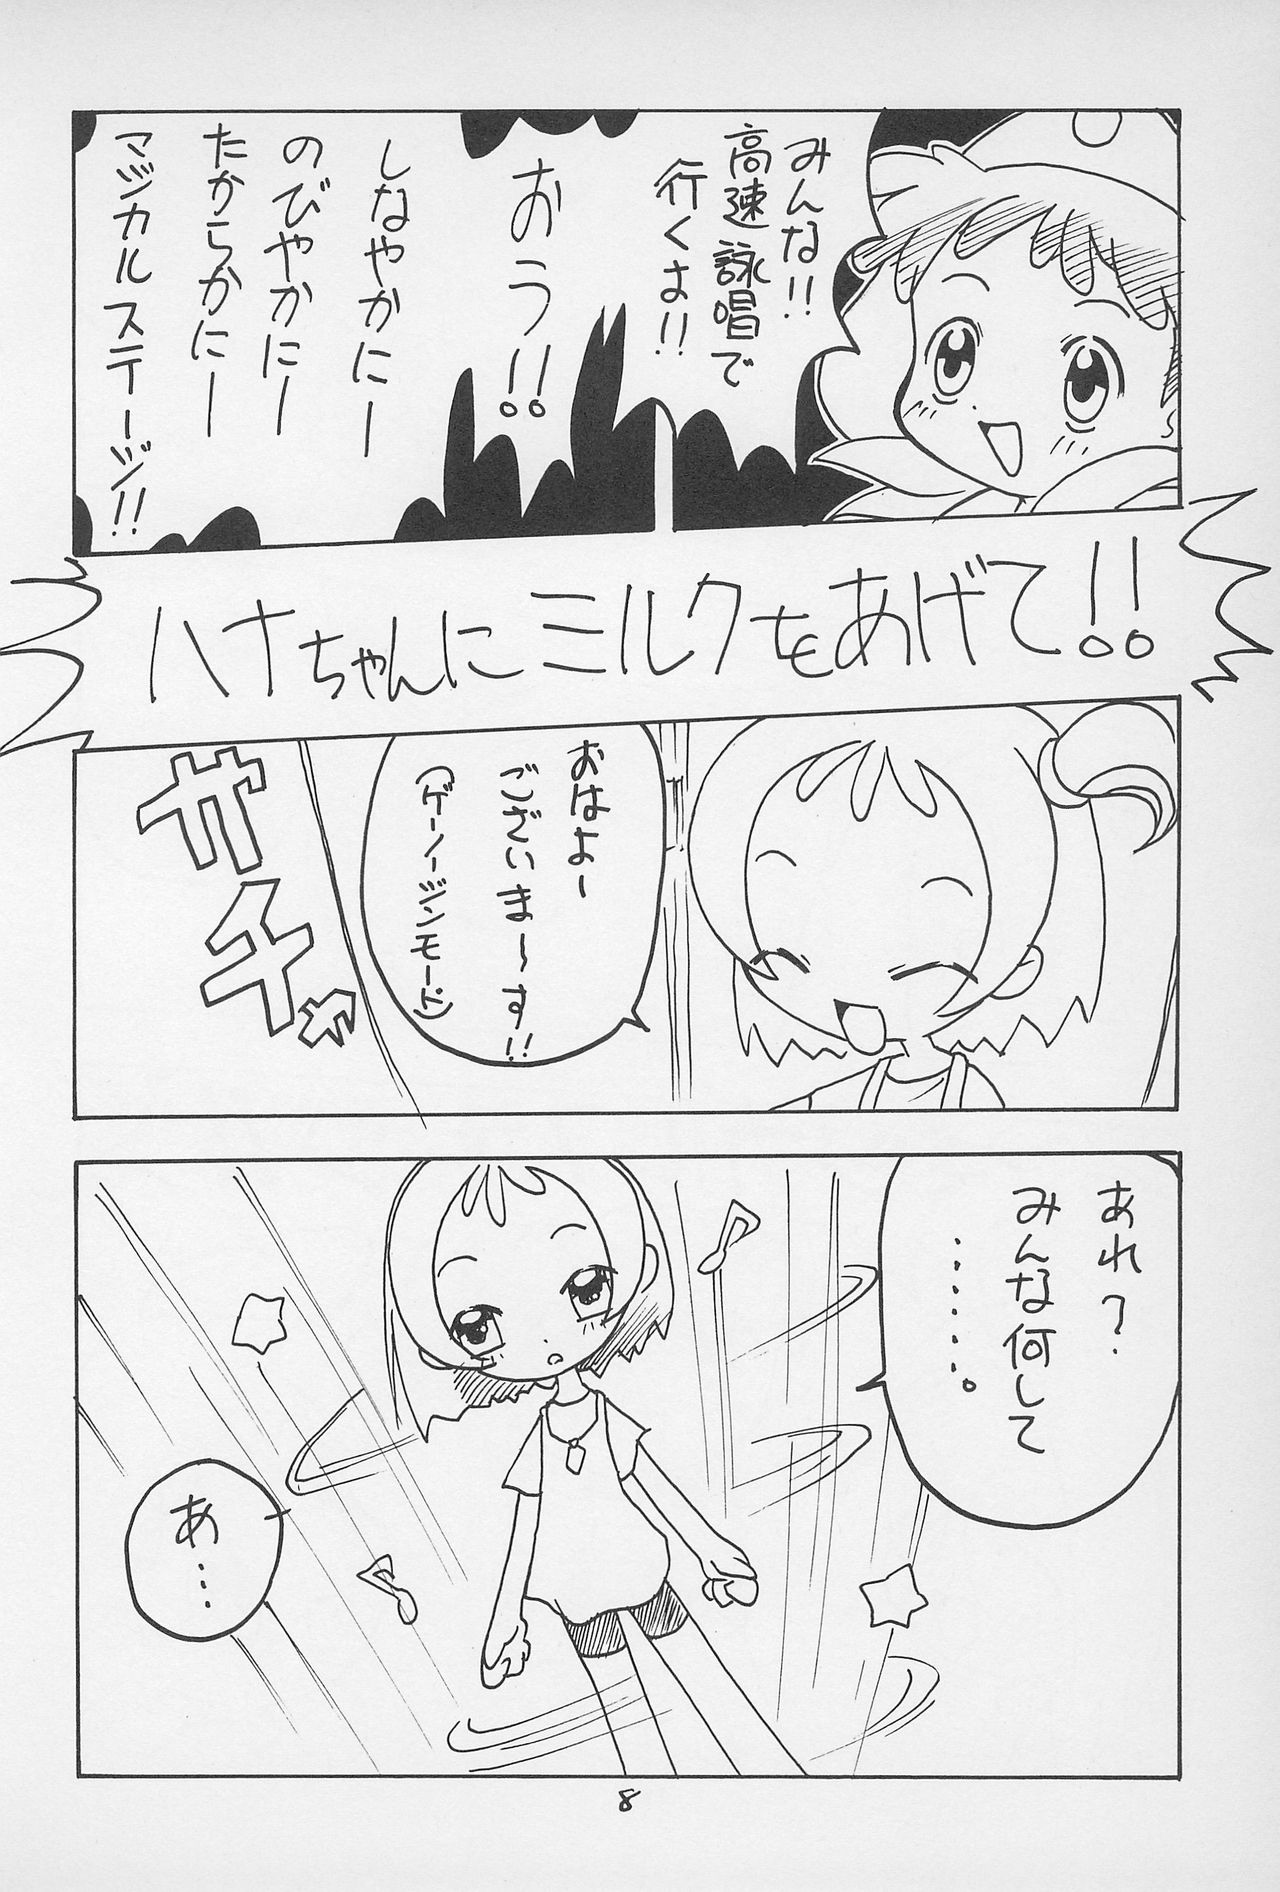 みんな!!
高速詠唱で
行くよ!!
おう!!
しなやかにー
のびやかにー
たからかにー
マジカルステージ!!
ハナちゃんにミルクをあげて!!
おはよー
ございま〜す!!
(ゲーノージンモード)
ガチャ
あれ?
みんな何して
・・・・・・。
あ…
8